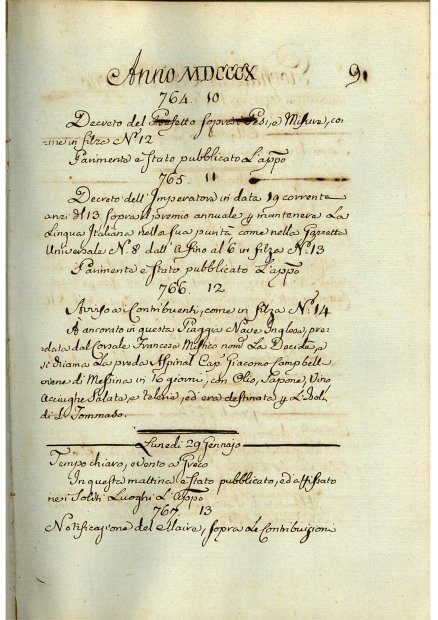 Anno MDCCCX 9.
764. 10
Decreto del Prefetto sopra i Pesi, e Misure, co,
me in filza N.º 12
Parimente è stato pubblicato L'appo
765. 11
Decreto dell'Imperatore in data 19 corrente
anzi del 13. sopra il premio annuale p mantenere La
Lingua Italiana nella sua purità come nella Gazzetta
Universale N. 8 dall' a fino al 6 in filza N.º 13
Parimente è stato pubblicato L'appo
766. 12
Avviso a i Contribuenti, come in filza N.º 14
È ancorato in questa Piaggia Nave Inglese, pre,
data dal Corsale Francese Mistico nom.º La Decide, e
si chiama La preda Aspinal Cap. Giacomo Campbell
viene di Messina in 16 giorni, con Olio, Sapone, Vino
Acciughe Salate, e Peleria, ed era destinata p L'Isola
di S. Tommaso.
Lunedì 29 Gennajo
Tempo chiaro, e Vento a Greco
In questa mattina è stato pubblicato, ed affissato
nei Soliti Luoghi L'Appo
767. 13
Notificazione del Maire, sopra Le Contribuzioni